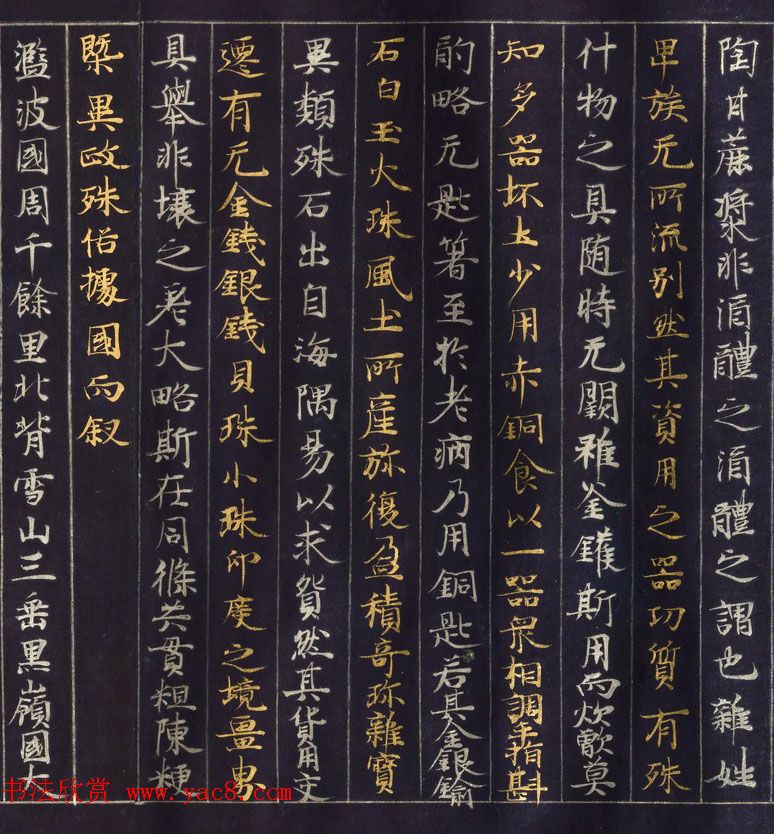 陶甘蔗漿非酒醴之酒醴之謂也雜姓
卑族无所流別然其資用之器功質有殊
什物之具随時无闕雖釜鑊斯用而炊甑莫
知多器坏土少用赤銅食以一器衆相調手指斟
酌略无匙箸至於老病乃用銅匙若其金銀鍮
石白玉火珠風土所產弥復盈積奇珎雜寶
異類殊石出自海隅易以求貿然其貨用交
遷有无金錢銀錢貝珠小珠印度之境畺
具舉非壤之老大略斯在同條共貫粗陳梗
槩異政殊俗據國而叙
濫波國周千餘里北背雪山三垂黒嶺國大
书法欣赏 www.yac8.com